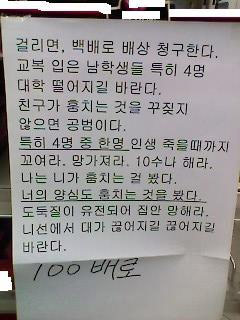 걸리면, 백배로 배상 청구한다.
교복 입은 남학생들 특히 4명
대학 떨어지길 바란다.
친구가 훔치는 것을 꾸짖지
않으면 공범이다.
특히 4명 중 한명 인생 죽을때까지
꼬여라. 망가져라. 10수나 해라.
나는 니가 훔치는 걸 봤다.
너의 양심도 훔치는 것을 봤다.
도둑질이 유전되어 집안 망해라.
니선에서 대가 끊어지길 끊어지길
바란다.
100 배로